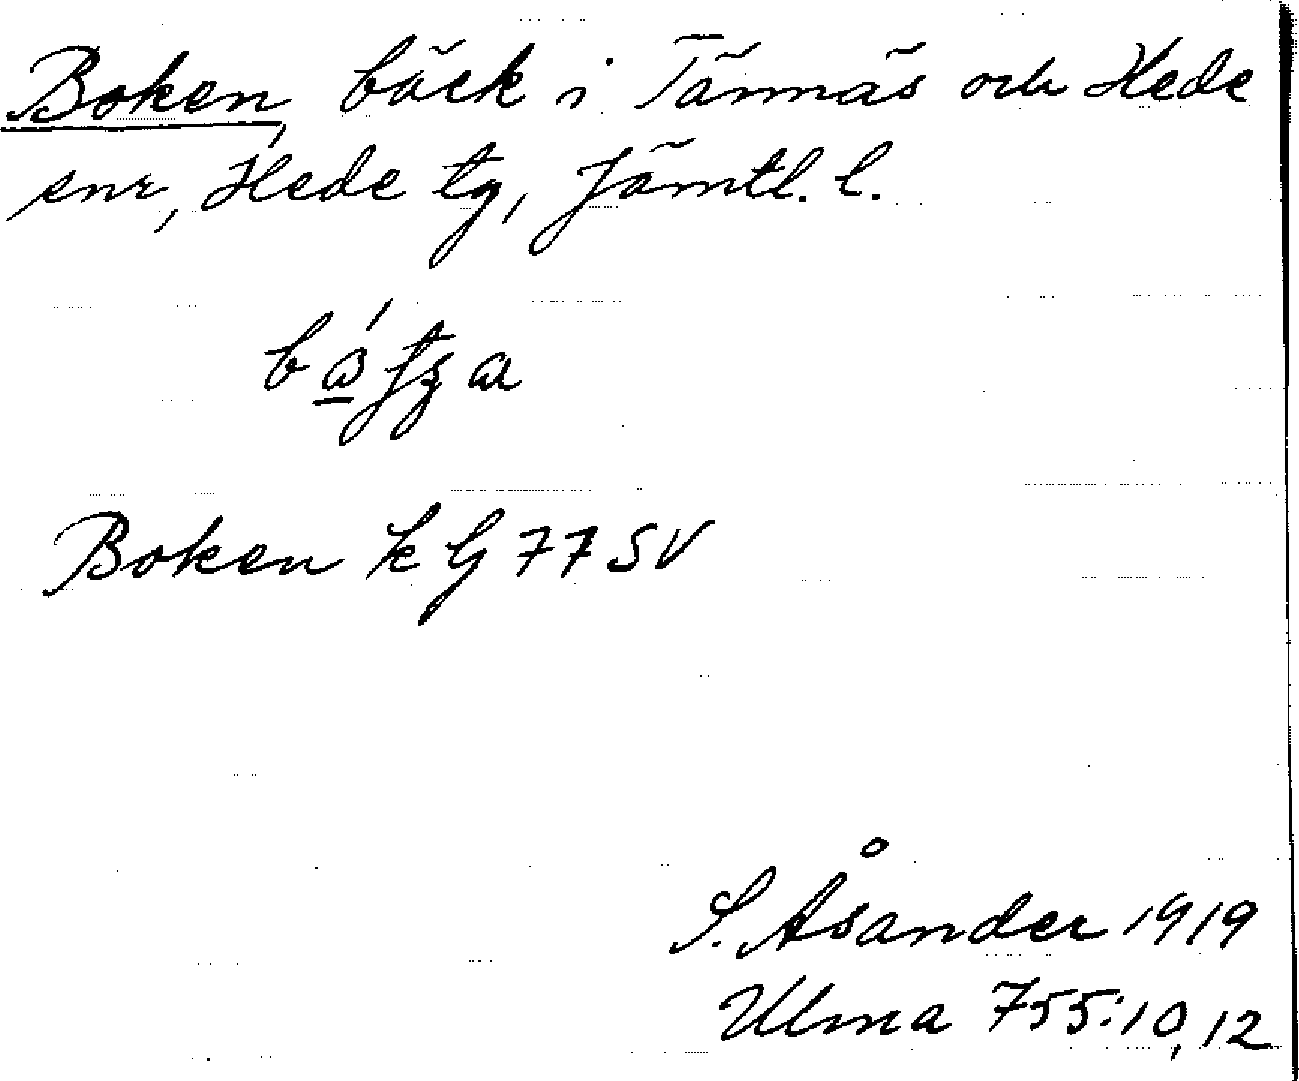 Boken, bäck i Tännäs och Hede
snr, Hede tg, Jämtl. l.
Boken k G 77 SV
S. Åsander 1919
Ulma 755:10, 12